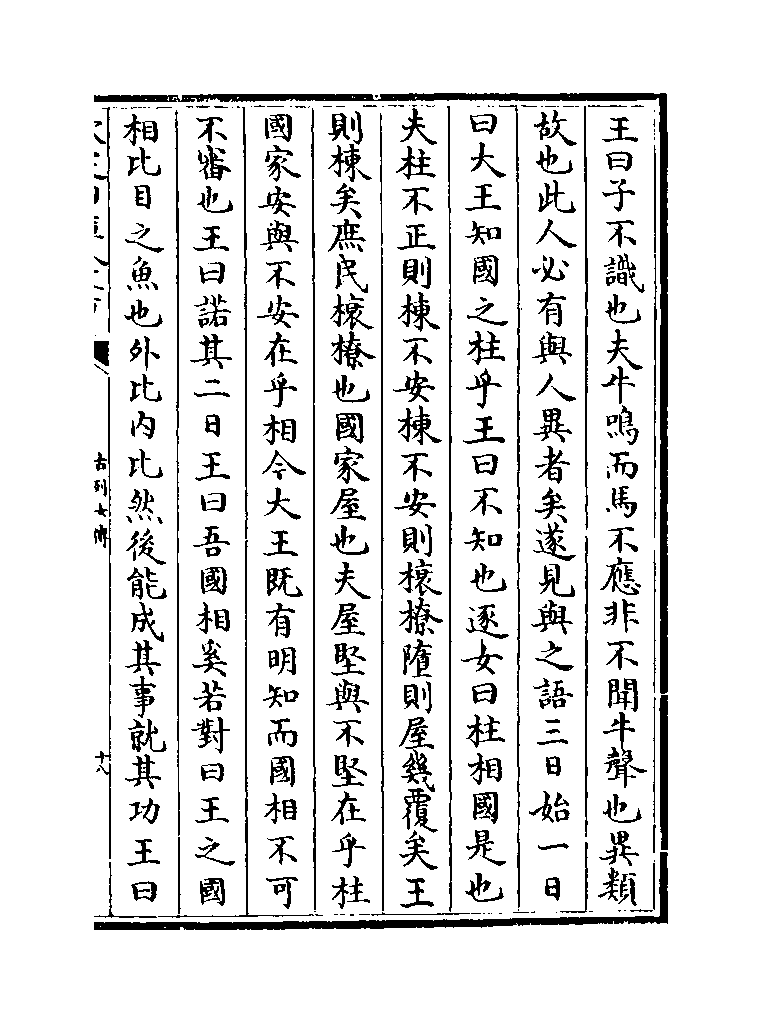 王曰子不識也夫牛鳴而馬不應非不聞牛聲也異類
故也此人必有與人異者矣遂見與之語三日始一日
曰大王知國之柱乎王曰不知也逐女曰柱相國是也
夫柱不正則棟不安棟不安則榱橑墮則屋幾覆矣王
則棟矣庶民榱橑也國家屋也夫屋堅與不堅在乎柱
國家安與不安在乎相今大王既有明知而國相不可
不審也王曰諾其二日王曰吾國相奚若對曰王之國
相比目之魚也外比内比然後能成其事就其功王曰
古列女傳
十八